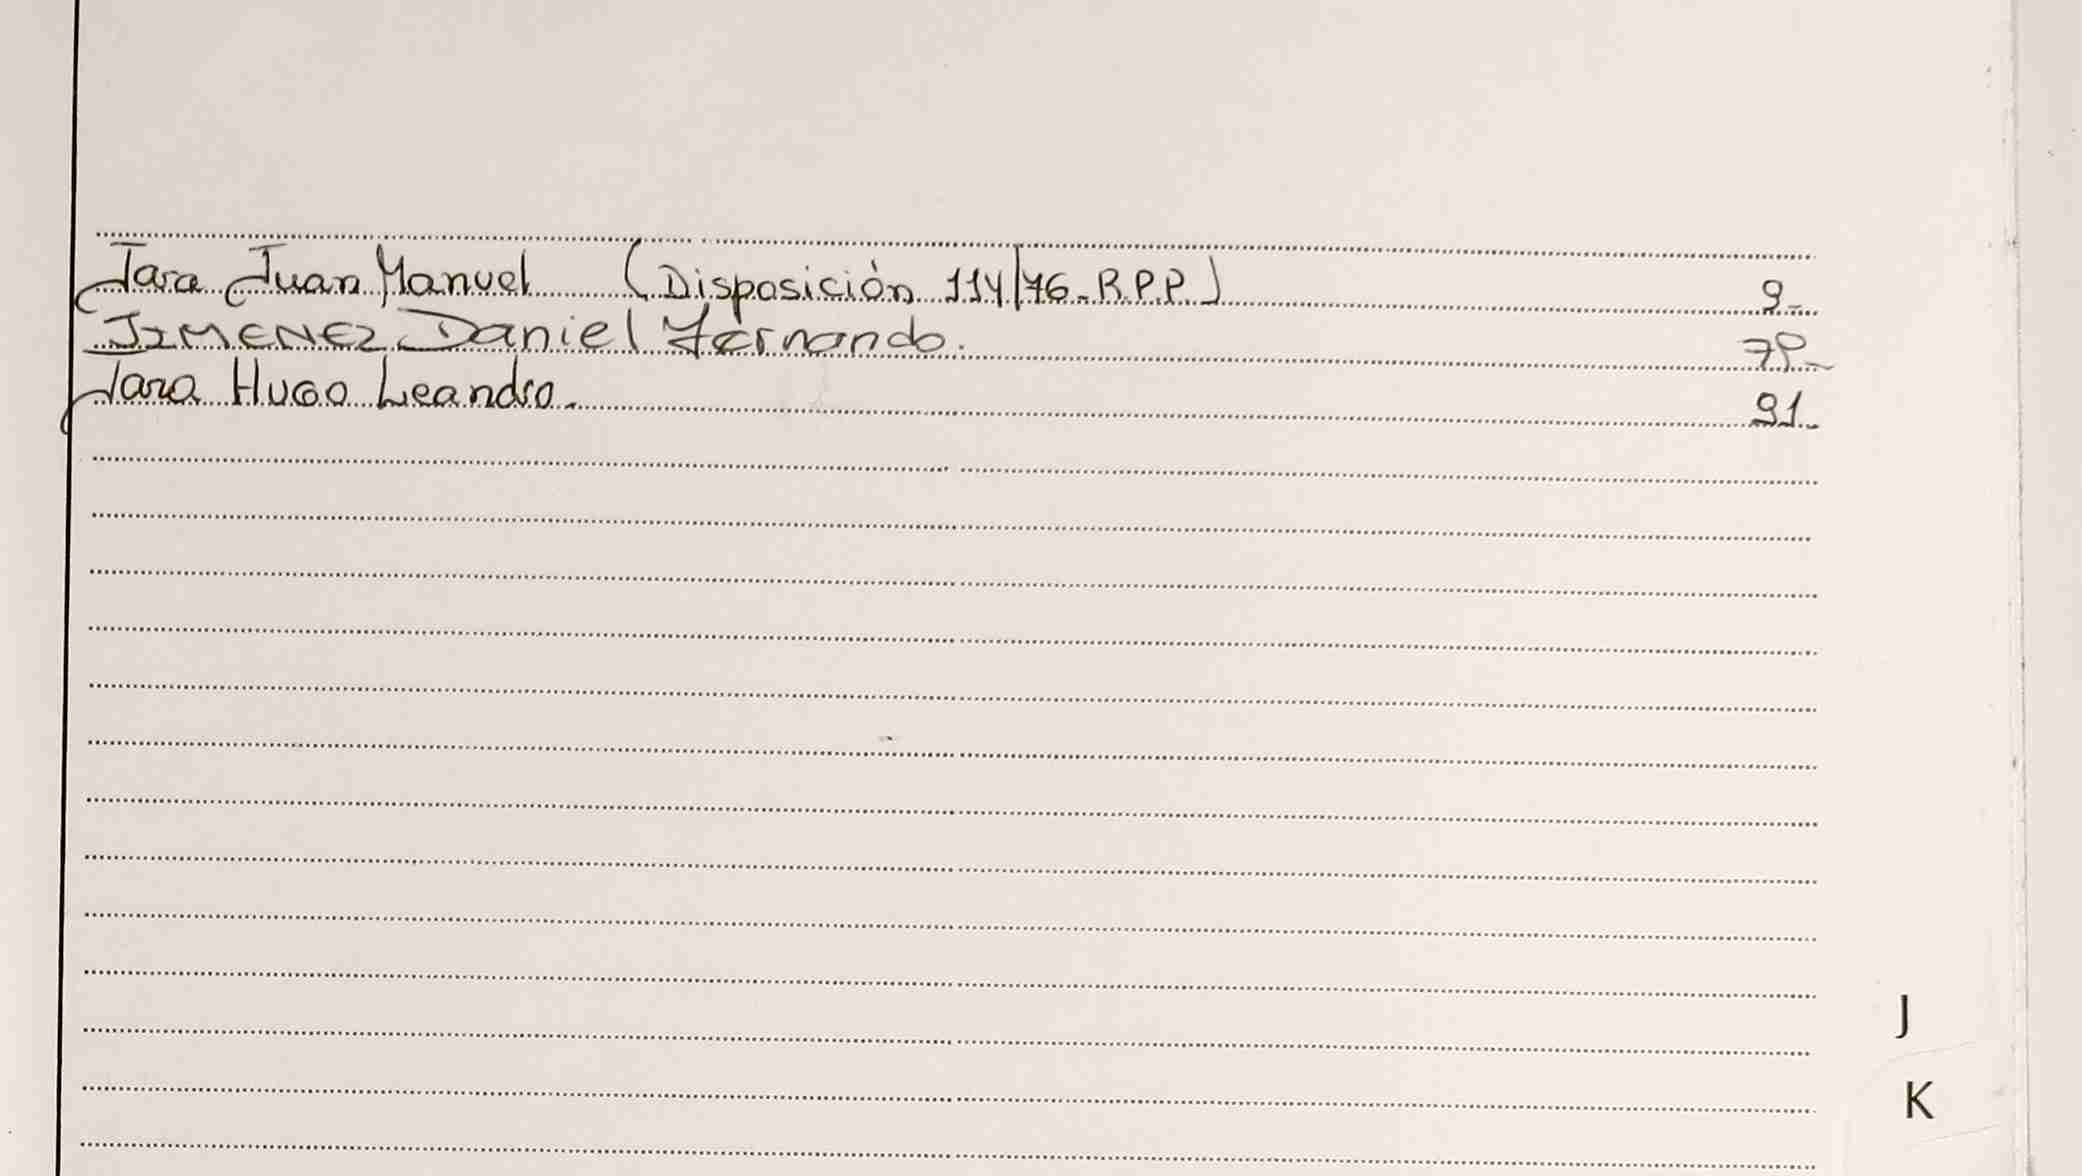 Jara Juan Manuel (Disposición 114/76-R.P.P.) 9-
JIMENEZ Daniel Fernando. 79-
Jara Hugo Leandro. 91-
J
K